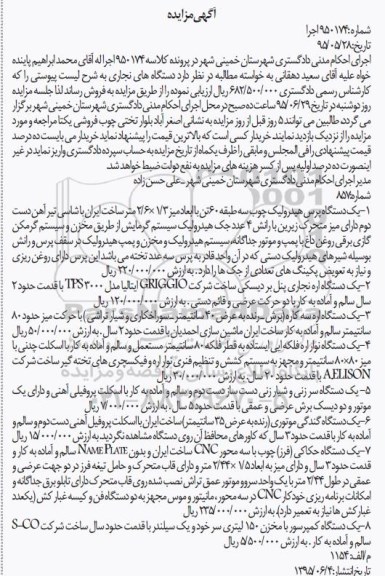 آگهی مزایده
شماره:۹۵۰۱۷۴ اجرا
تاریخ:۹۵/۰۵/۲۸
اجرای احکام مدنی دادگستری شهرستان خمینی شهر در پرونده کلاسه ۹۵۰۱۷۴ اجرا له آقای محمد ابراهیم پاینده
خواه علیه آقای سعید دهقانی به خواسته مطالبه در نظر دارد دستگاه های نجاری به شرح لیست پیوستی را که
کارشناس رسمی دادگستری ۶۸۲/۵۰۰/۰۰۰ ریال ارزیابی نموده را از طریق مزایده به فروش رساند لذا جلسه مزایده
روز دوشنبه در تاریخ ۹۵/۰۶/۲۹ ساعت ده صبح در محل اجرای احکام مدنی دادگستری شهرستان خمینی شهر برگزار
می گردد، طالبین می توانند ۵ روز قبل از روز مزایده به نشانی اصغر آباد بلوار تختی چوب فروشی یکتا مراجعه و مورد
مزایده را از نزدیک بازدید نمایند. خریدار کسی است که بالاترین قیمت را پیشنهاد نماید خریدار می بایست ده درصد
قیمت پیشنهادی را فی المجلس و مابقی را ظرف یکماه از تاریخ مزایده به حساب سپرده دادگستری واریز نماید در غیر
اینصورت ده درصد اولیه پس از کسر هزینه های مزایده به نفع دولت ضبط خواهد شد.
مدیر اجرای احکام مدنی دادگستری شهرستان خمینی شهر ـ علی حسن زاده
شماره ۸۵۷
۱-یک دستگاه پرس هیدرولیک چوب سه طبقه ۶۰ تن با ابعاد میز ۱/۳ × ۲/۶ متر ساخت ایران با شاسی تیر آهن دست
دوم دارای میز متحرک زیرین با رانش ۴ عدد جک هیدرولیک سیستم گرمایش از طریق مخزن و سیستم گرمکن
گازی برقی روغن داغ با پمپ و موتور جداگانه، سیستم هیدرولیک و مخزن و پمپ هیدرولیک در سقف پرس و رانش
بوسیله شیرهای هیدرولیک دستی که در آن واحد قادر به پرس سه عدد تخته می باشد این پرس دارای روغن ریزی
و نیاز به تعویض پکینگ های تعدادی از جک ها را دارد. به ارزش ۲۲۰/۰۰۰/۰۰۰ ریال
۲-یک دستگاه اره نجاری پنل بر دیسکی ساخت شرکت GRIGGIO ایتالیا مدل TPS۳۰۰۰ با قدمت حدود ۲
سال سالم و آماده به کار با دو حرکت عرضی و قائم دستی . به ارزش ۱۲۰/۰۰۰/۰۰۰ ریال
۳-یک دستگاه اره سه کاره (برش رنده به عرض ۴۰ سانتیمتر، سوراخکاری و شیار تراشی) با حرکت میز حدود ۸۰
سانتیمتر سالم و آماده به کار ساخت ایران ماشین سازی احمدیان با قدمت حدود ۲ سال. به ارزش ۵۰/۰۰۰/۰۰۰ ریال
۴-یک دستگاه نوار اره فلکه ایی ایستاده به قطر فلکه ۸۰ سانتیمتر مستعمل و سالم و آماده به کار با اسکلت چدنی با
میز ۸۰×۸۰ سانتیمتر و مجهز به سیستم کشش و تنظیم فنری نوار اره و فیکسچری های تخته گیر ساخت شرکت
AELISON با قدمت حدود ۲۰ سال . به ارزش ۳۰/۰۰۰/۰۰۰ ریال
۵-یک دستگاه سر زنی و شیار زنی دست ساز دست دوم و سالم و آماده به کار با اسکلت پروفیلی آهنی و دارای یک
موتور و دو دیسک برش عرضی و عمقی با قدمت حدود ۵ سال . به ارزش ۷/۰۰۰/۰۰۰ ریال
۶-یک دستگاه گندگی موتوری (رنده به عرض ۳۵ سانتیمتر) ساخت ایران با اسکلت پروفیل آهنی دست دوم و سالم و
آماده به کار با قدمت حدود ۳ سال که کاورهای محافظ آن روی دستگاه مشاهده نگردید به ارزش ۱۵/۰۰۰/۰۰۰ ریال
۷-یک دستگاه حکاکی (فرز) چوب با سه محور CNC ساخت ایران و بدون NAME PLATE سالم و آماده به کار و
قدمت حدود ۳ سال و دارای میز به ابعاد ۱/۵ × ۲/۴۴ متر و دارای قاب متحرک و حامل تیغه فرز در دو جهت عرضی و
عمقی در طول ۲/۴۴ متر با یک واحد سرو و موتور عمق تراش نصب شده روی قاب متحرک دارای تابلو برق جداگانه و
امکانات برنامه ریزی خودکار CNC در سه محور، مانیتور و موس مجهز به دو دستگاه فن و کیسه غبار کش (یکعدد
غبار کش ها نیاز به تعمیر دارد). به ارزش ۲۳۵/۰۰۰/۰۰۰ ریال
۸-یک دستگاه کمپرسور با مخزن ۱۵۰ لیتری سر خود و یک سیلندر با قدمت حدود سال ساخت شرکت S-CO
سالم و آماده به کار . به ارزش ۵/۵۰۰/۰۰۰ ریال
م/الف:۱۱۵۴
تاریخ انتشار:۱۳۹۵/۰۶/۴